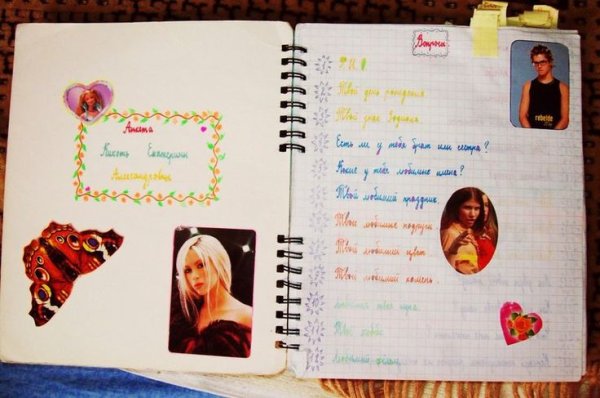 Анкета
Кикоть Екатерины
Александровны
Вопросы
Ф.И.О
Твой день рождения.
Твой знак Зодиака.
Есть ли у тебя брат или сестра?
Какие у тебя любимые имена?
Твой любимый праздник.
Твои любимые подруги.
Твой любимый цвет.
Твой любимый камень.
любимая твоя
Твоё хобби
Любимый фильм
rebelde